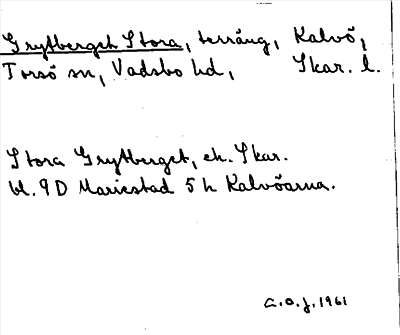 Grytberget Stora, terräng, Kalvö,
Torsö sn, Vadsbo hd, Skar. l.
Stora Grytberget, ek. Skar.
bl. 9 D Mariestad 5 h Kalvöarna.
C.O.J. 1961